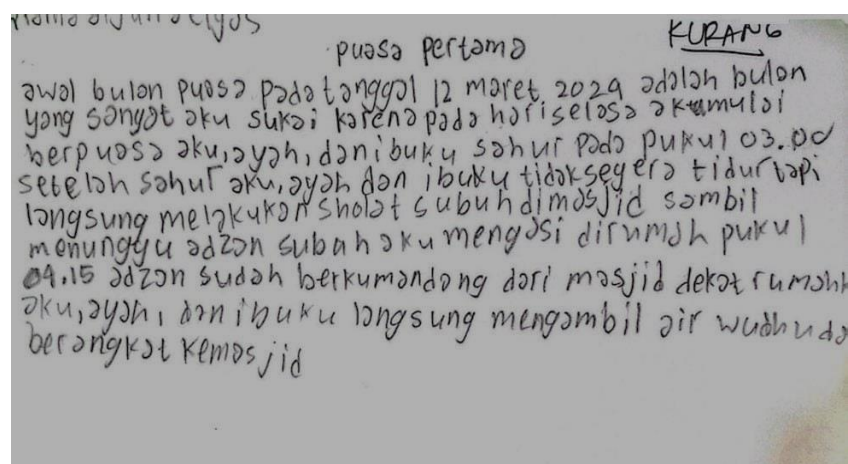 KURANG
puasa pertama
awal bulan puasa pada tanggal 12 maret 2024 adalah bulan
yang sangat aku sukai karena pada hari selasa aku mulai
berpuasa aku, ayah, dan ibuku sahur pada pukul 03.00
setelah sahur aku, ayah dan ibuku tidak segera tidur tapi
langsung melakukan sholat subuh dimasjid sambil
menunggu adzan subah aku mengasi dirumah pukul
04.15 adzan sudah berkumandang dari masjid dekat rumahk
aku, ayah, dan ibuku langsung mengambil air wudhu da
berangkat kemasjid